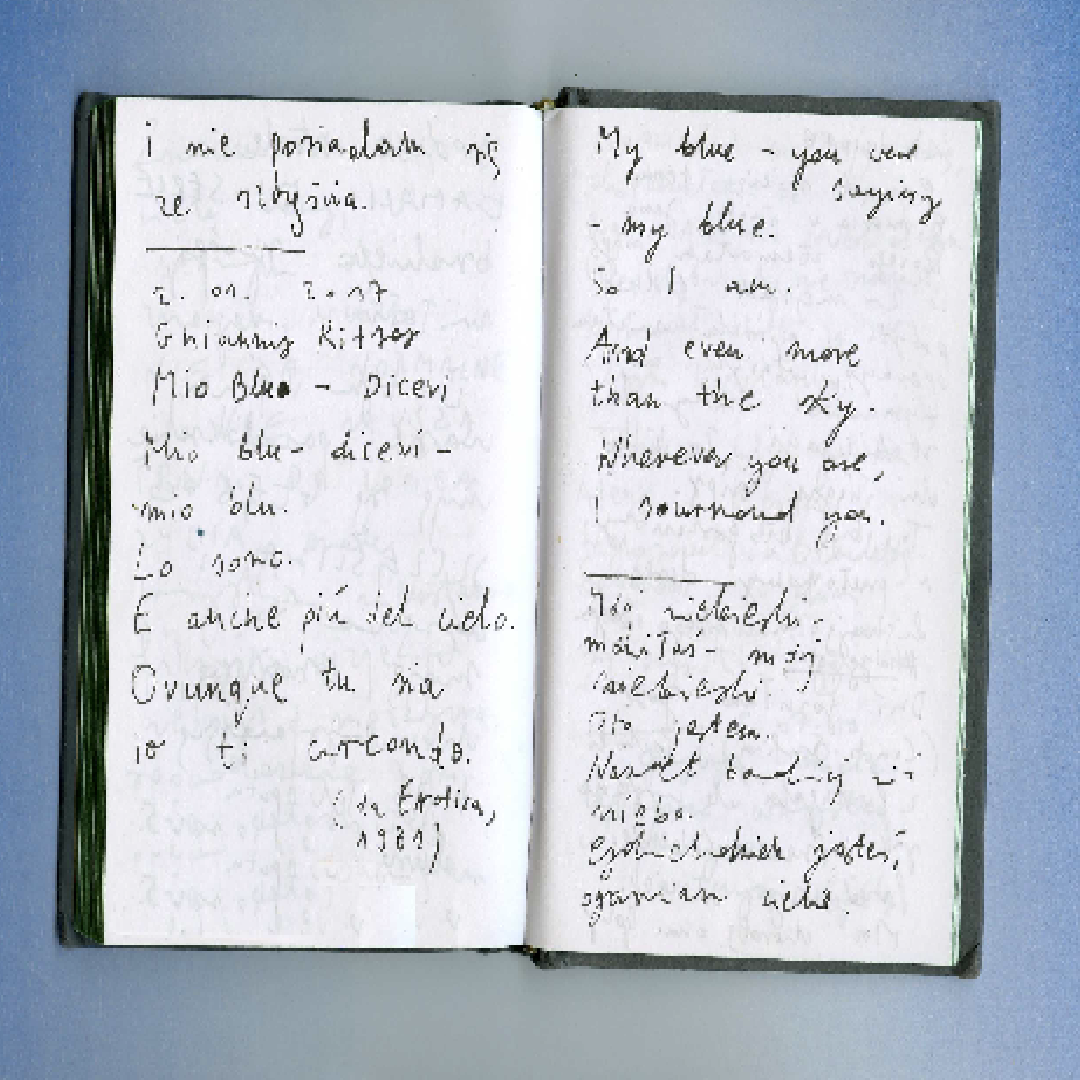 i nie posiadam się
ze
2. 01. 2017
Ghiannis Ritsos
Mio Blu - Dicevi
Mio blu - dicevi -
mio blu.
Lo sono.
E anche più del cielo.
Ovunque tu sia
io ti circondo.
(da Erotica,
1981)
My blue - you were
saying
- my blue.
So I am.
And even more
than the sky.
Wherever you are,
I sourround you.
Mój niebieski -
mówiłaś - mój
niebieski.
Oto jestem.
Nawet bardziej niż
niebo.
Gdziekolwiek jesteś,
ogarniam ciebie.